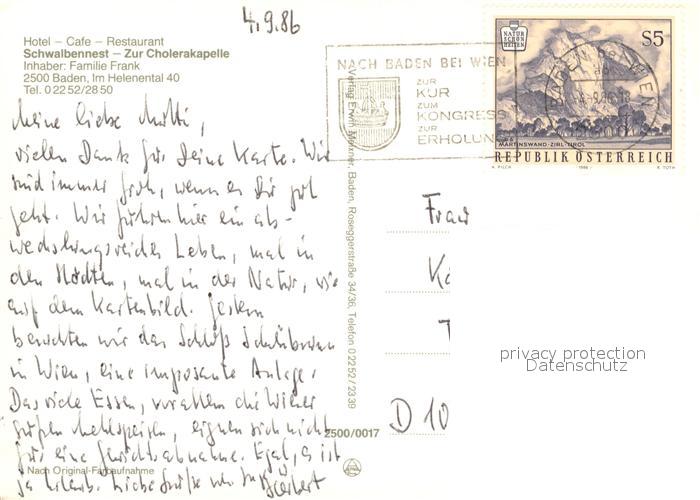 4.9.86
Hotel – Cafe – Restaurant
Schwalbennest – Zur Cholerakapelle
Inhaber: Familie Frank
2500 Baden, Im Helenental 40
Tel. 0 22 52/28 50
Meine liebe Mutti,
vielen Dank für Deine Karte. Wir
sind immer froh, wenn es Dir gut
geht. Wir führen hier ein ab-
wechslungsreiches Leben, mal in
den Städten, mal in der Natur, wie
auf dem Kartenbild. Gestern
besuchten wir das Schloß Schönbrunn
in Wien, eine imposante Anlage.
Das viele Essen, vor allem die Wiener
süßen Mehlspeisen, eignen sich nicht
für eine Gewichtsabnahme. Egal, es ist
ja Urlaub. Liebe Grüße von
Nach Original-Farbaufnahme
Verlag Erwin Meixner, Baden, Roseggerstraße 34/36, Telefon 0 22 52 / 23 39
2500/0017
NACH BADEN BEI WIEN
ZUR
KUR
ZUM
KONGRESS
ZUR
ERHOLUN
BADEN BEI WIEN
NATUR
SCHÖN
HEITEN
S5
MARTINSWAND · ZIRL · TIROL
REPUBLIK ÖSTERREICH
A. PILCH
1986
K. TOTH
Frau
D 10
privacy protection
Datenschutz